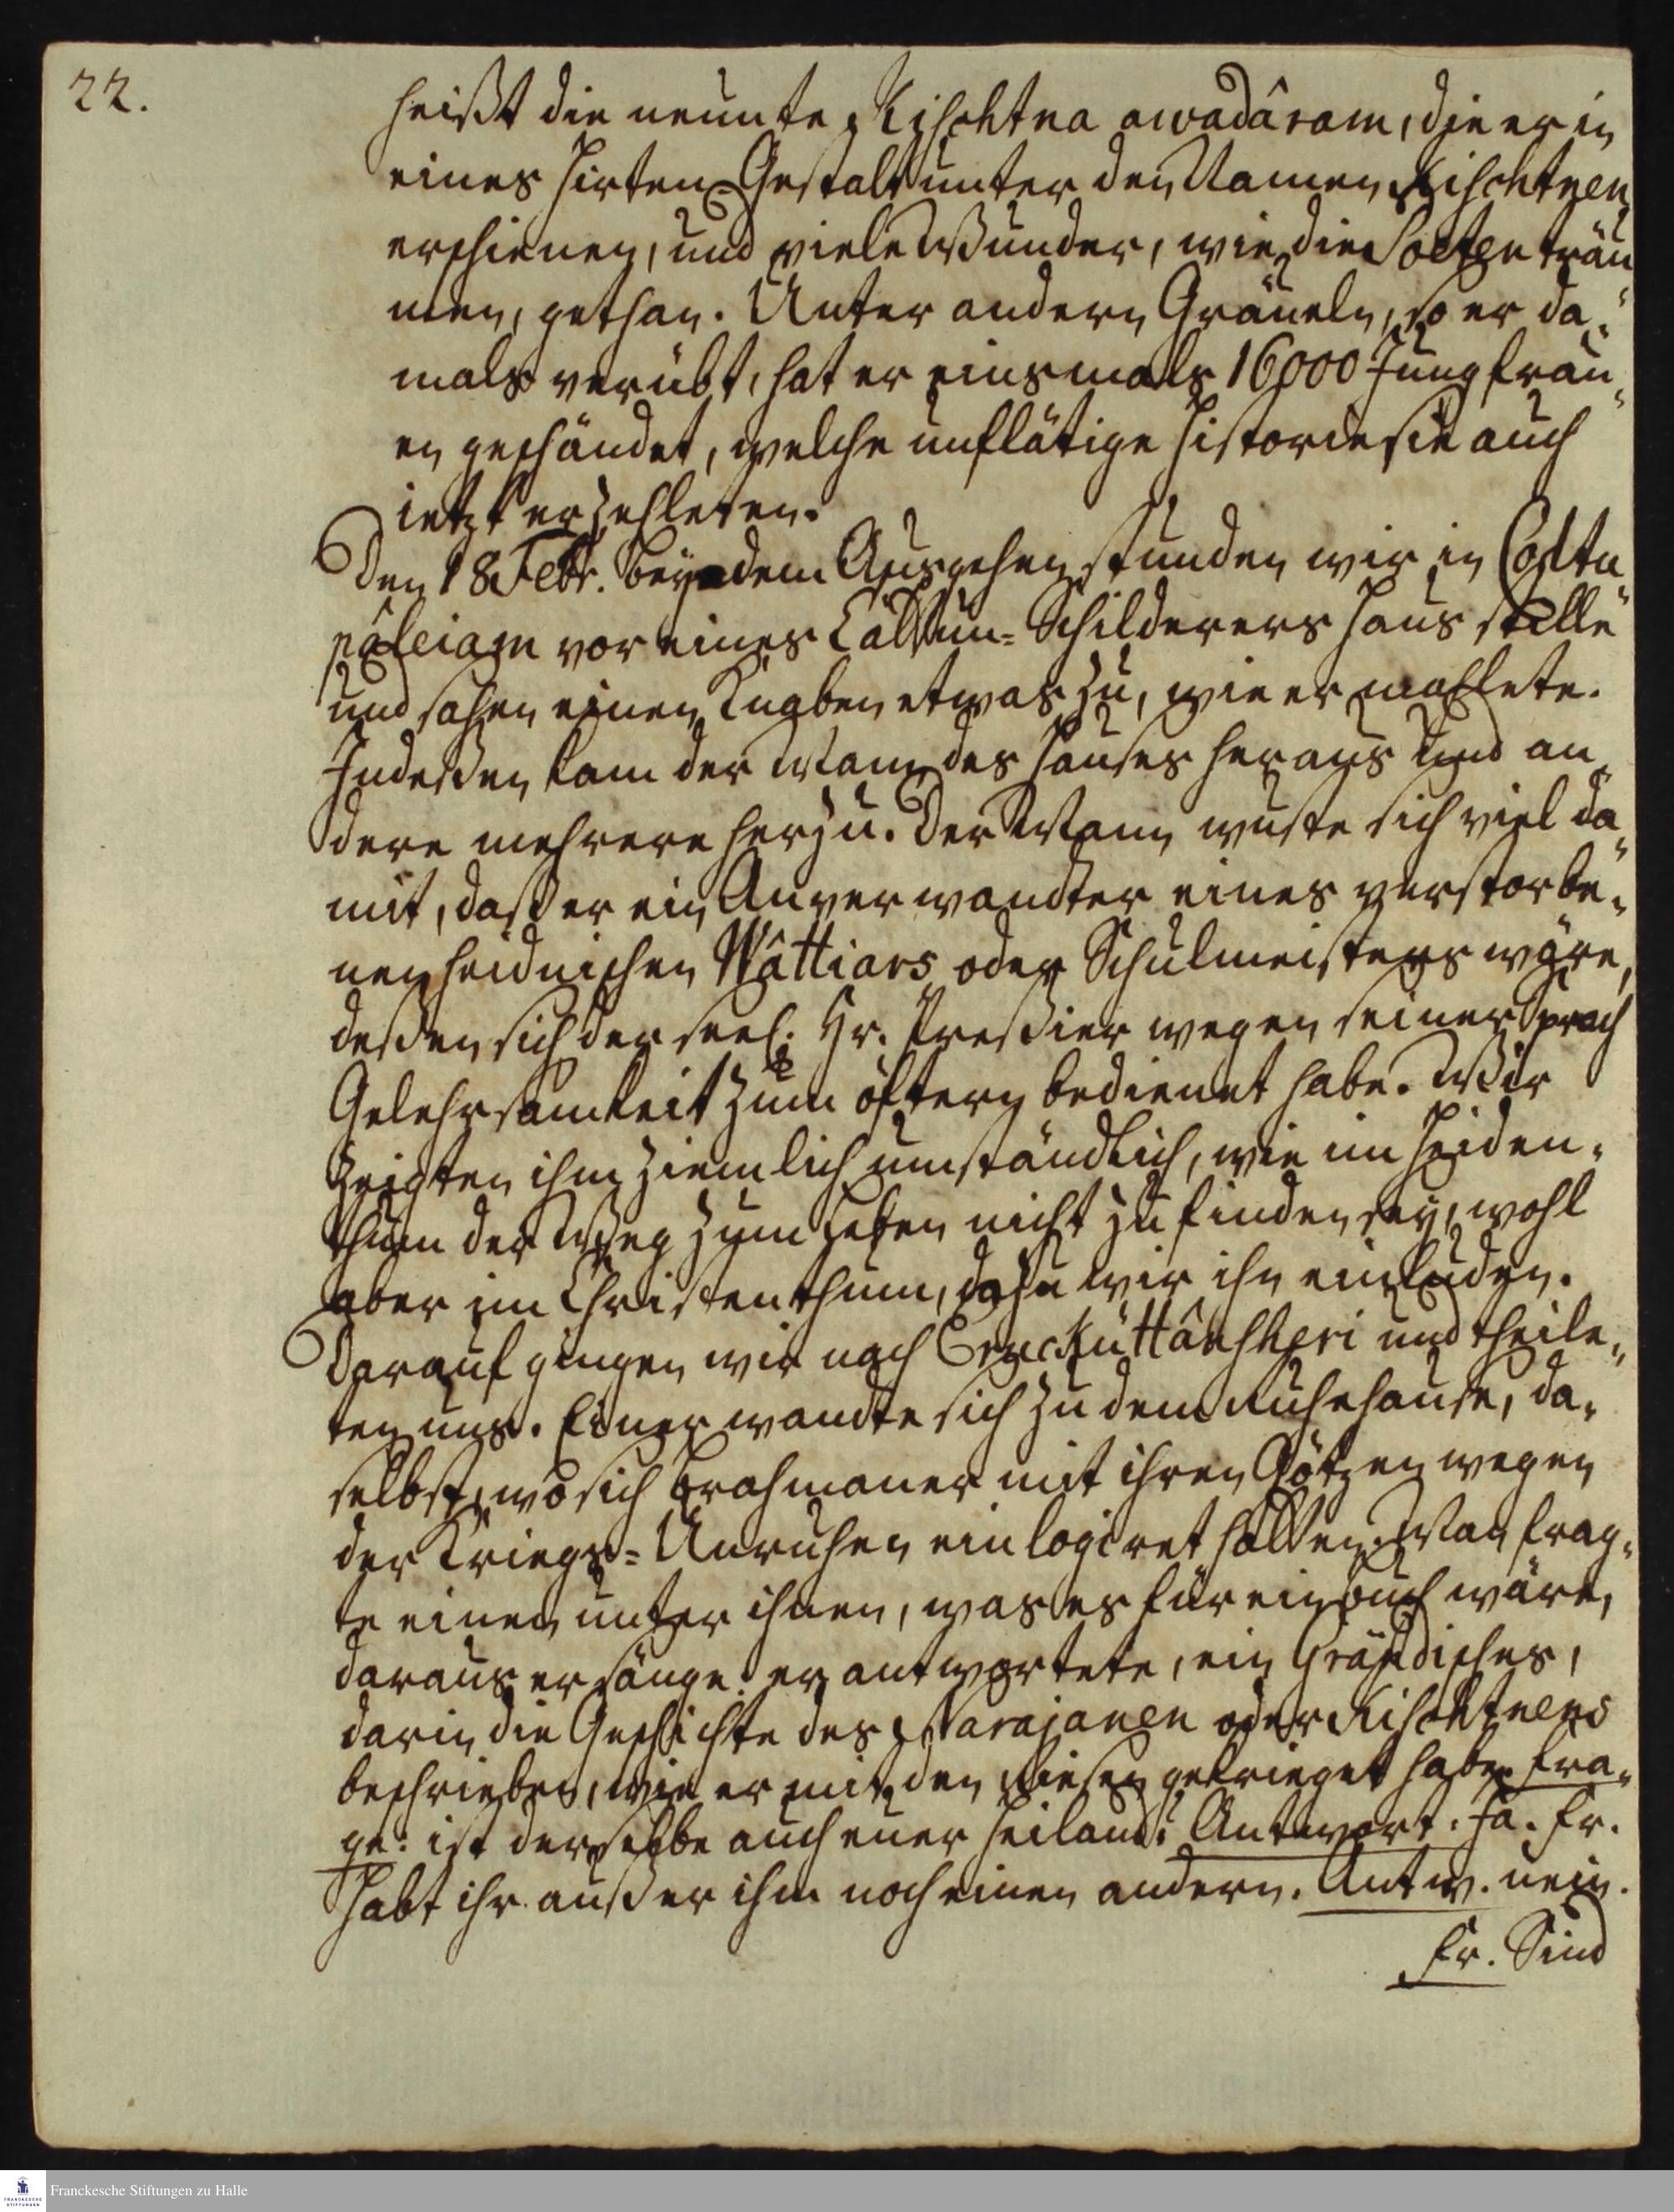 22.
heißt die neunte Kischtna awadâram, die er in
eines Hirten Gestalt unter den Namen Kischtnen
erschienen, und viele Wunder, wie die Poeten träu-
men, gethan. Unter andern Gräueln, so er da-
mals verübt, hat er einsmals 16000 Jungfrau-
en geschändet, welche unflätige Historie sie auch
ietzt erzehleten.
Den 18 Febr. bey dem Ausgehen stunden wir in Cottu
pâleiam vor eines Cattun-Schilderers Haus stille
und sahen einen Knaben etwas zu, wie er mahlete.
Indeßen kam der Mann des Hauses heraus und an-
dere mehrere herzu. Der Mann wuste sich viel da-
mit, daß er ein Anverwandter eines verstorbe-
nen heidnischen Wâttiars oder Schulmeisters wäre,
deßen sich der seel. Hr. Preßier wegen seiner Sprach
Gelehrsamkeit zum öftern bedienet habe. Wir
zeigten ihm ziemlich umständlich, wie im Heiden-
thum der Weg zum Leben nicht zu finden sey, wohl
aber im Christenthum, dazu wir ihn einluden.
Darauf gingen wir nach und theile-
ten uns. Einer wandte sich zu dem Ruhehause, da-
selbst, wo sich Brahmaner mit ihren Götzen wegen
der Kriegs-Unruhen einlogiret hatten. Man frag-
te einen unter ihnen, was es für ein Buch wäre,
daraus er sänge. er antwortete, ein Grändisches,
darin die Geschichte des Narajanen oder Kischtnens
beschrieben, wie er mit den Riesen gekrieget habe. Fra-
ge: ist derselbe auch euer Heiland? Antwort: Ja. Fr.
Habt ihr außer ihm noch einen andern. Antw. nein.
Fr. Sind
Franckesche Stiftungen zu Halle